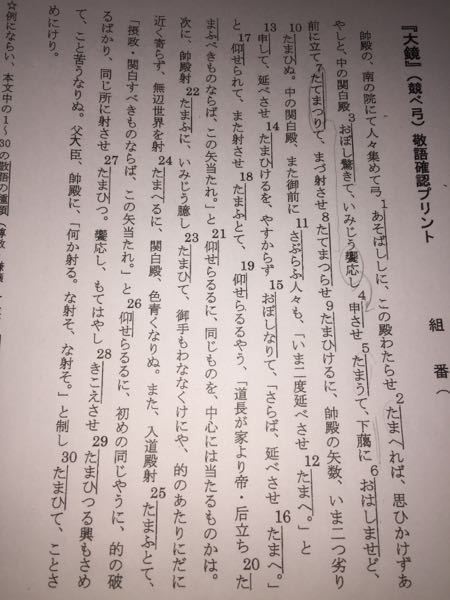 『大鏡』(競べ弓)敬語確認プリント
組 番(
帥殿の、南の院にて人々集めて弓1あそばししに、この殿わたらせ2たまへれば、思ひかけずあ
やしと、中の関白殿3おぼし驚きて、いみじう饗応し4申させ5たまうて、下﨟に6おはしませど、
前に立て7たてまつりて、まづ射させ8たてまつらせ9たまひけるに、帥殿の矢数、いま二つ劣り
10たまひぬ。中の関白殿、また御前に11さぶらふ人々も、「いま二度延べさせ12たまへ。」と
13申して、延べさせ14たまひけるを、やすからず15おぼしなりて、「さらば、延べさせ16たまへ。」
と17仰せられて、また射させ18たまふとて、19仰せらるるやう、「道長が家より帝・后立ち20た
まふべきものならば、この矢当たれ。」と21仰せらるるに、同じものを、中心には当たるものかは。
次に、帥殿射22たまふに、いみじう臆し23たまひて、御手もわななくけにや、的のあたりにだに
近く寄らず、無辺世界を射24たまへるに、関白殿、色青くなりぬ。また、入道殿射25たまふとて、
「摂政・関白すべきものならば、この矢当たれ。」と26仰せらるるに、初めの同じやうに、的の破
るばかり、同じ所に射させ27たまひつ。饗応し、もてはやし28きこえさせ29たまひつる興もさめ
て、こと苦うなりぬ。父大臣、帥殿に、「何か射る。な射そ、な射そ。」と制し30たまひて、ことさ
めにけり。
☆例にならい、本文中の1～30の敬語の種類